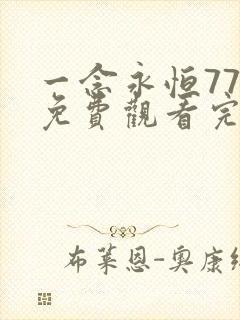 一念永恒77
免費觀看完
布萊恩-奧康納